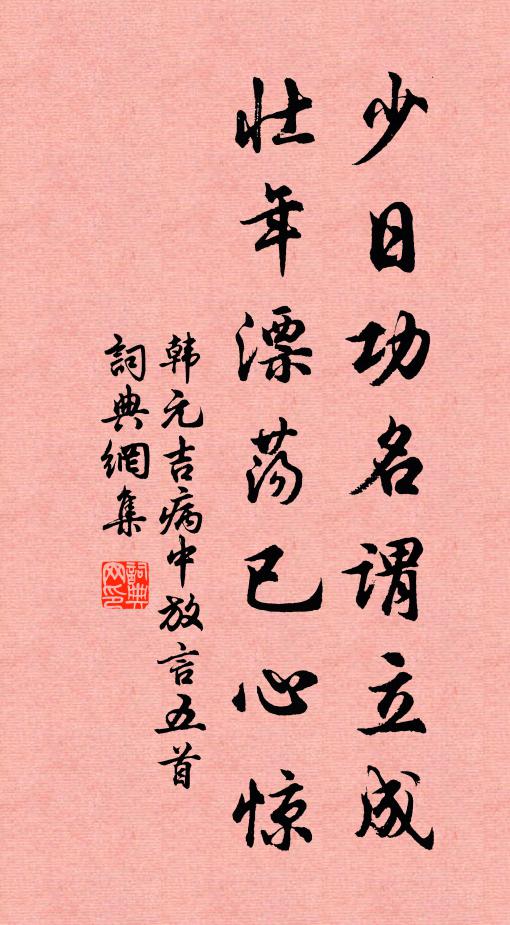 少日功名谓立成
壮年漂荡已心惊
韩元吉病中放言五首
詞典網集
詞典网印